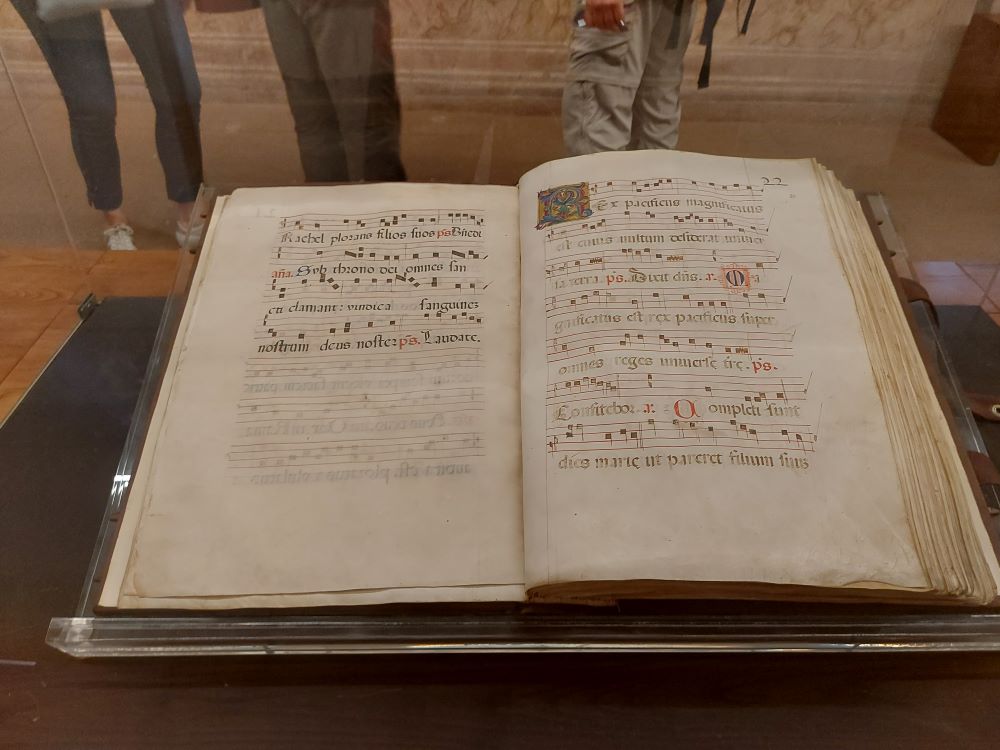 Rachel plorans filios suos ps Bn̄edi
an̄a. Sub throno dei omnes san
cti clamant: vindica sanguinez
nostrum deus noster ps. Laudate.
22
Rex pacificus magnificatus
est cuius vultum desiderat univer
sa terra. ps. Dixit dn̄s. a. Ma
gnificatus est rex pacificus super
omnes reges universe tre. ps.
Confitebor. a. Completi sunt
dies marie ut pareret filium suus